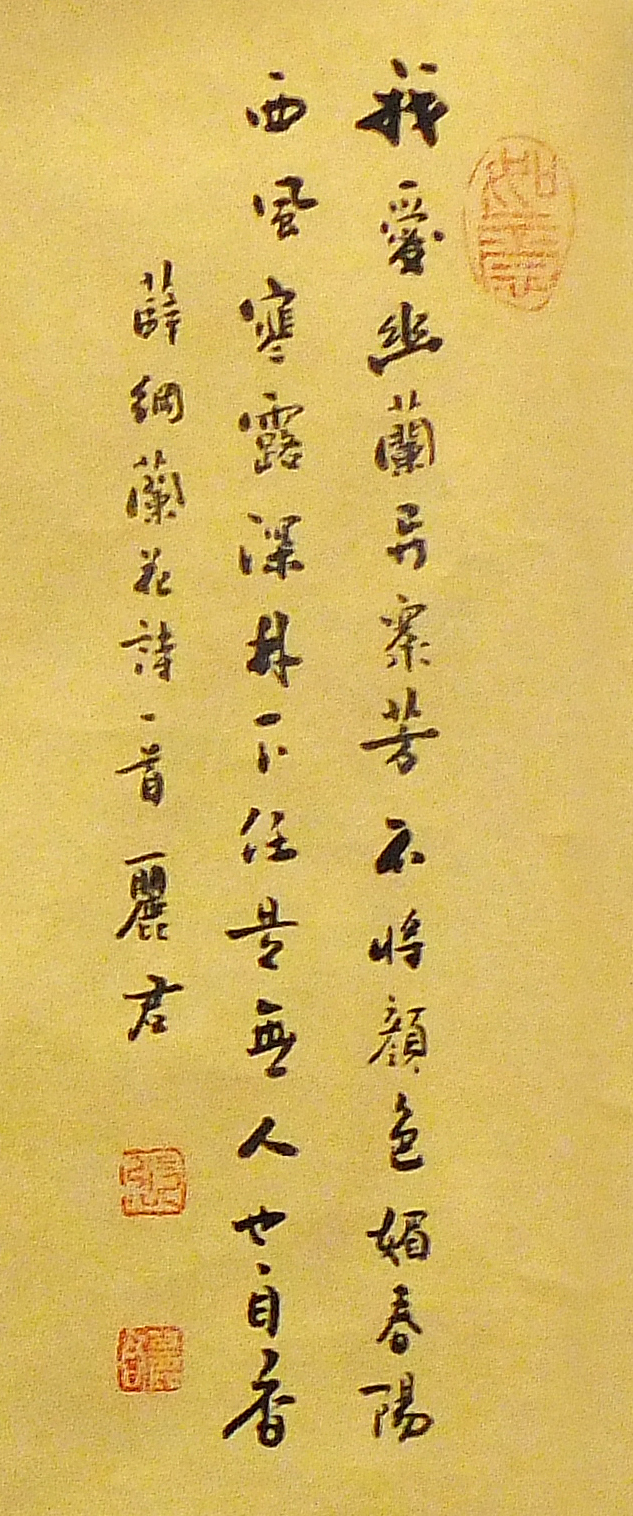 我愛幽蘭异衆芳不將顏色媚春陽
西風寒露深林下任是無人也自香
薛綱蘭花詩一首麗君
張